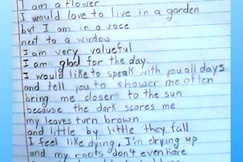 I am a flower
I would love to live in a garden
but I am in a vase
next to a window
I am very valueful
I am glad for the day.
I would like to speak with you all days
and tell you to shower me often
bring me closer to the sun
because the dark scares me
my leaves turn brown
and little by little they fall
I feel like dying, I'm drying up
and my roots don't even have